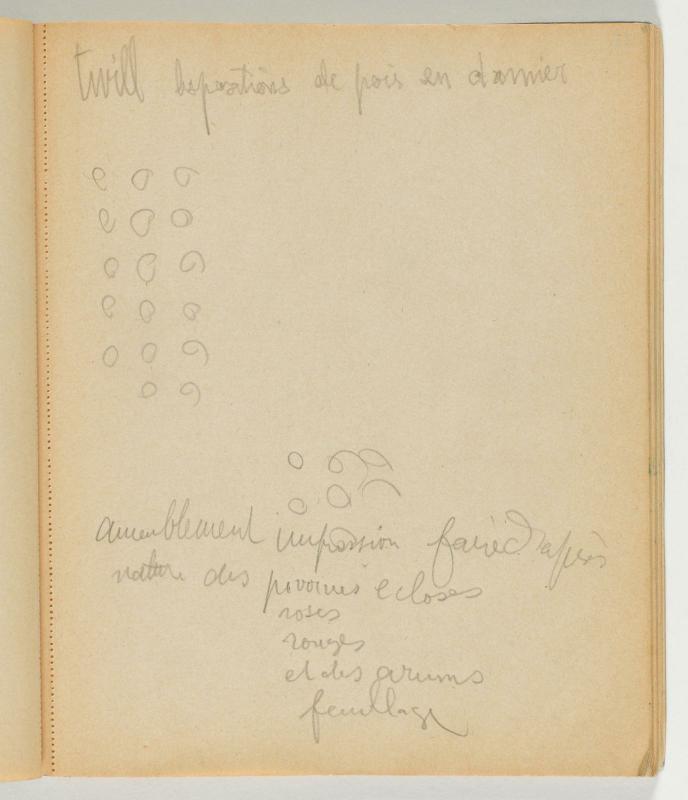 twill dispositions de pois en damier
ameublement impression faire d'après
nature des pivoines écloses
roses
rouges
et des arums
feuillage